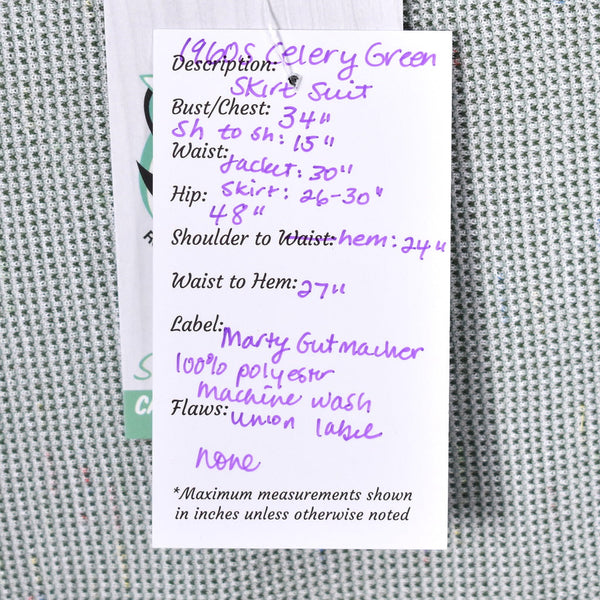 1960s Celery Green
Description:
Skirt Suit
Bust/Chest: 34"
Sh to sh: 15"
Waist: Jacket: 30"
Hip: Skirt: 26-30"
48"
Shoulder to Waist: hem: 24"
Waist to Hem: 27"
Label: Marty Gutmacher
100% polyester
Machine wash
Flaws: Union label
None
*Maximum measurements shown
in inches unless otherwise noted